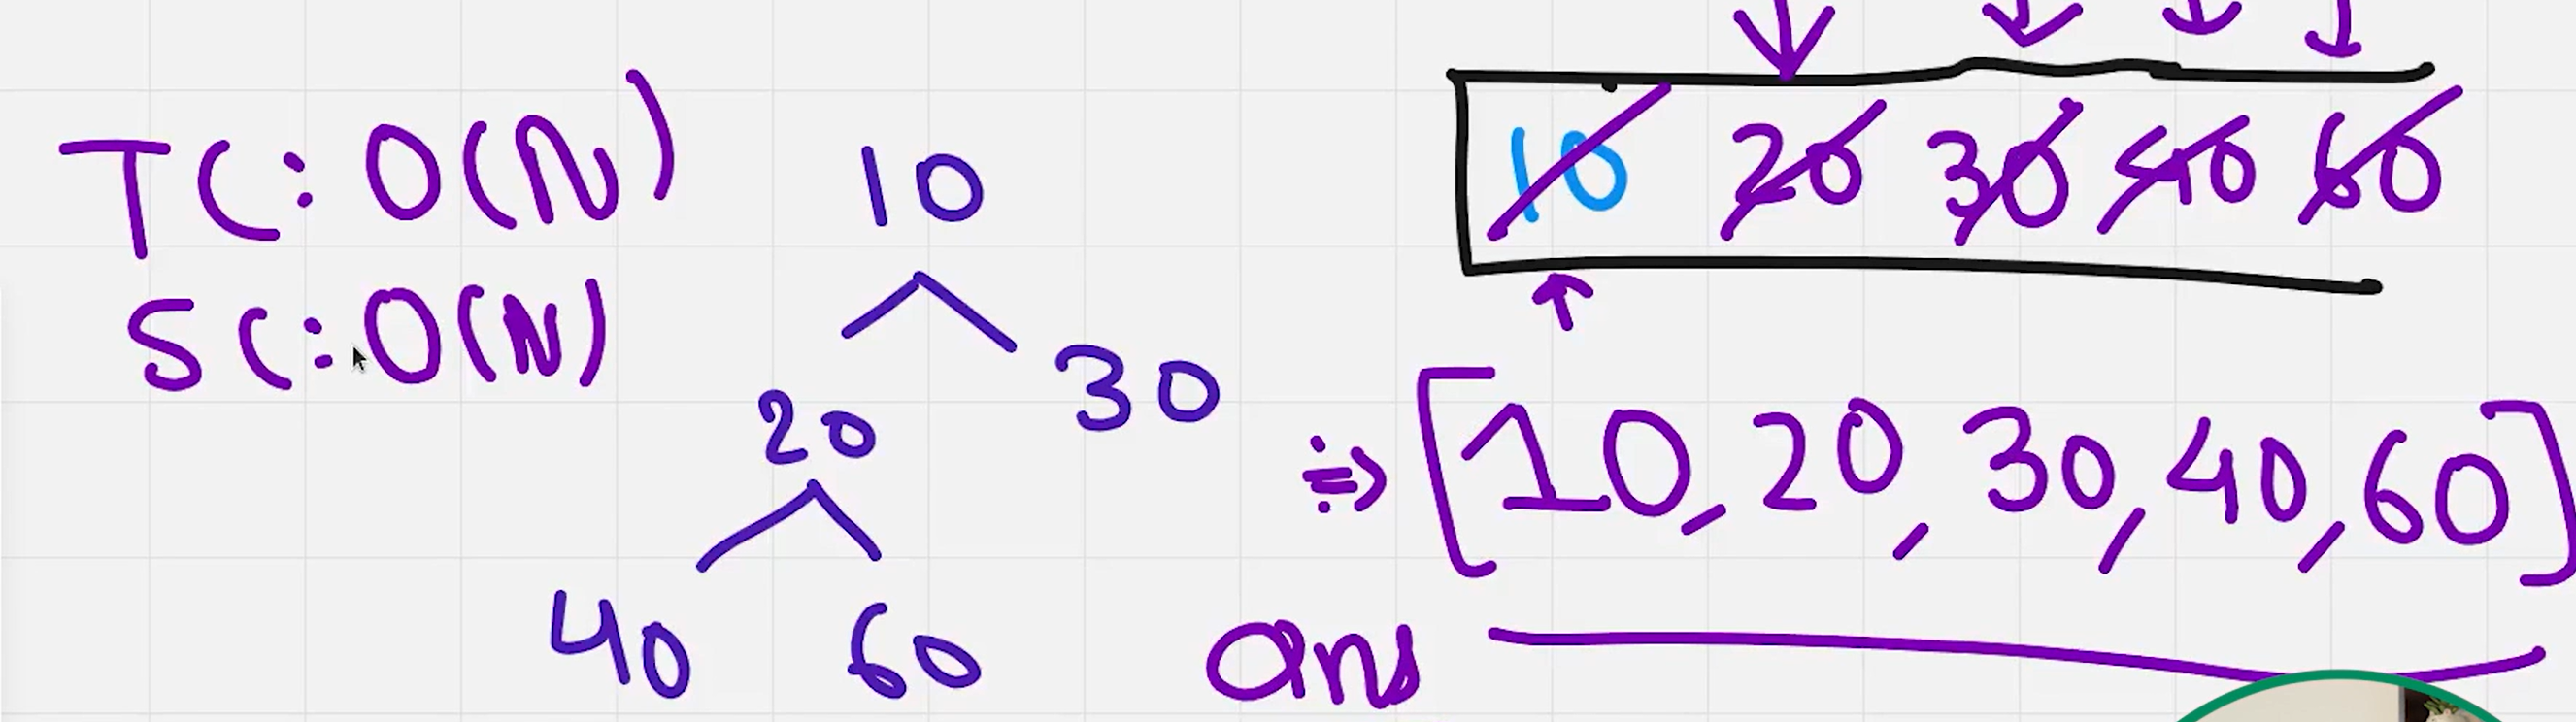 TC: O(N)
SC: O(N)
10
20 30
40 60
10 20 30 40 60
⇒ [10, 20, 30, 40, 60]
ans